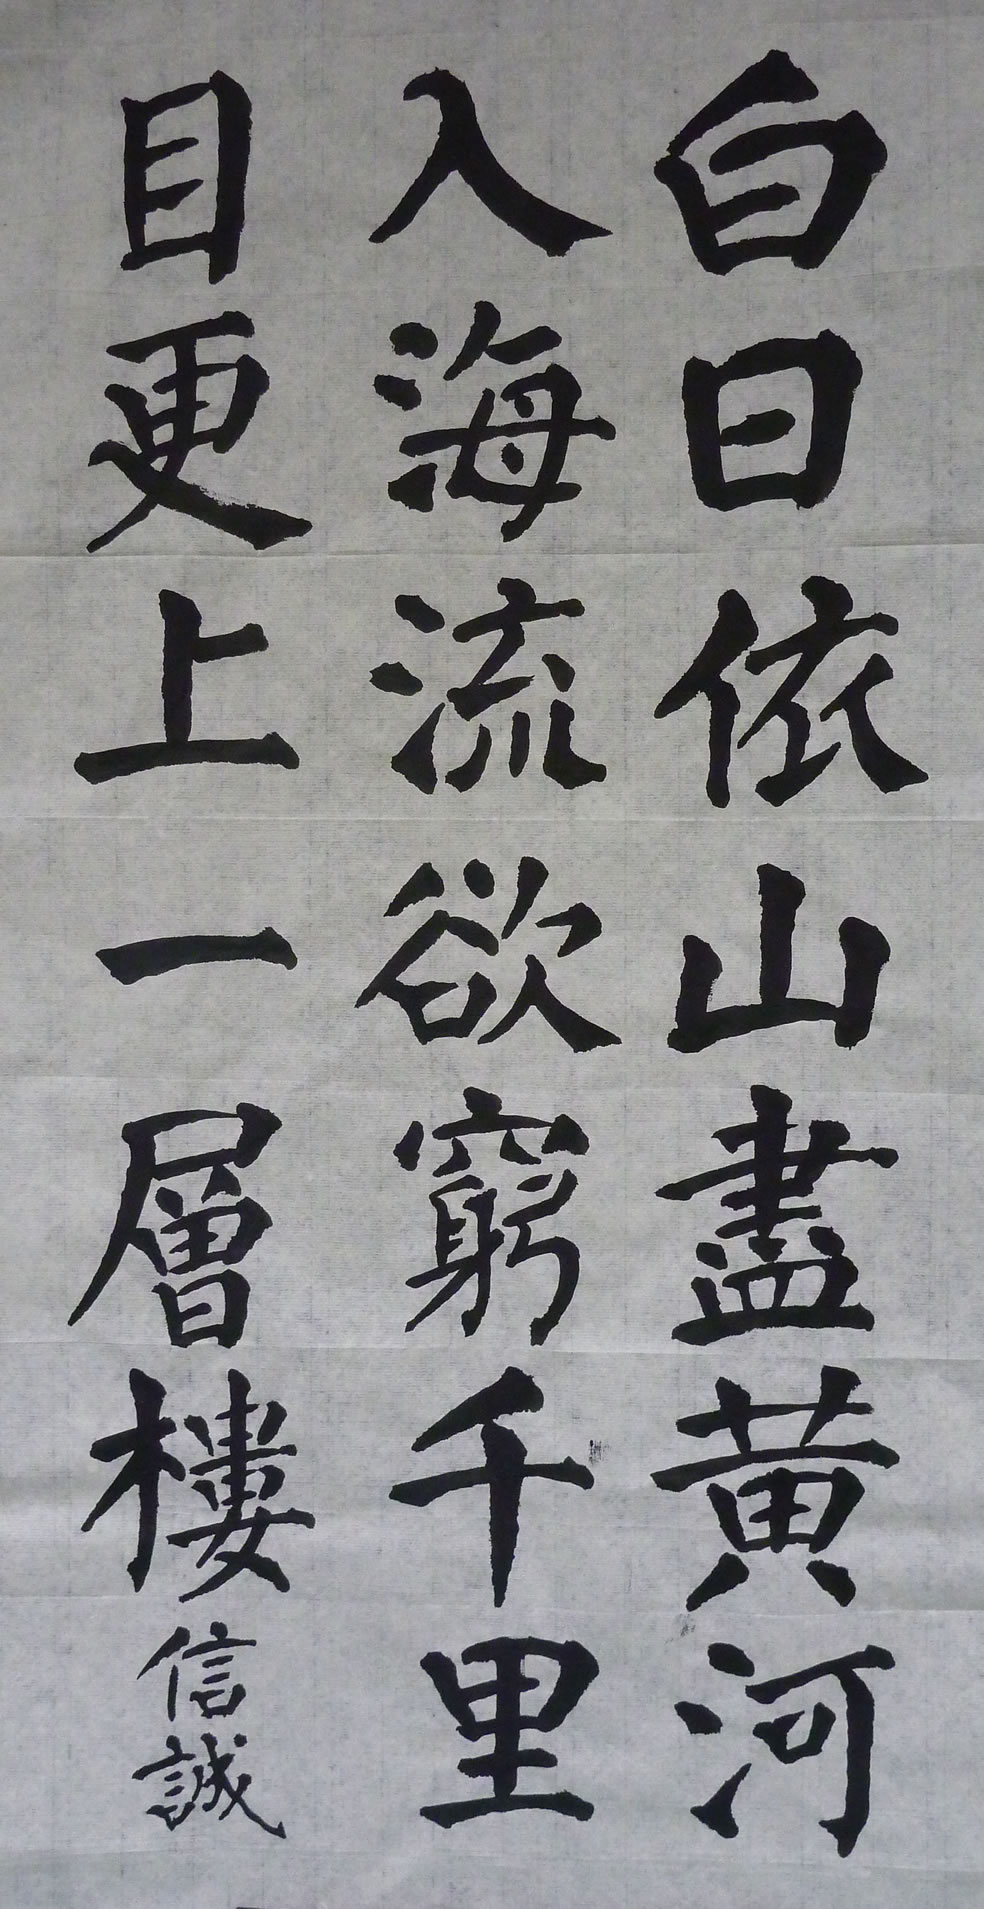 白日依山盡黃河
入海流欲窮千里
目更上一層樓
信誠